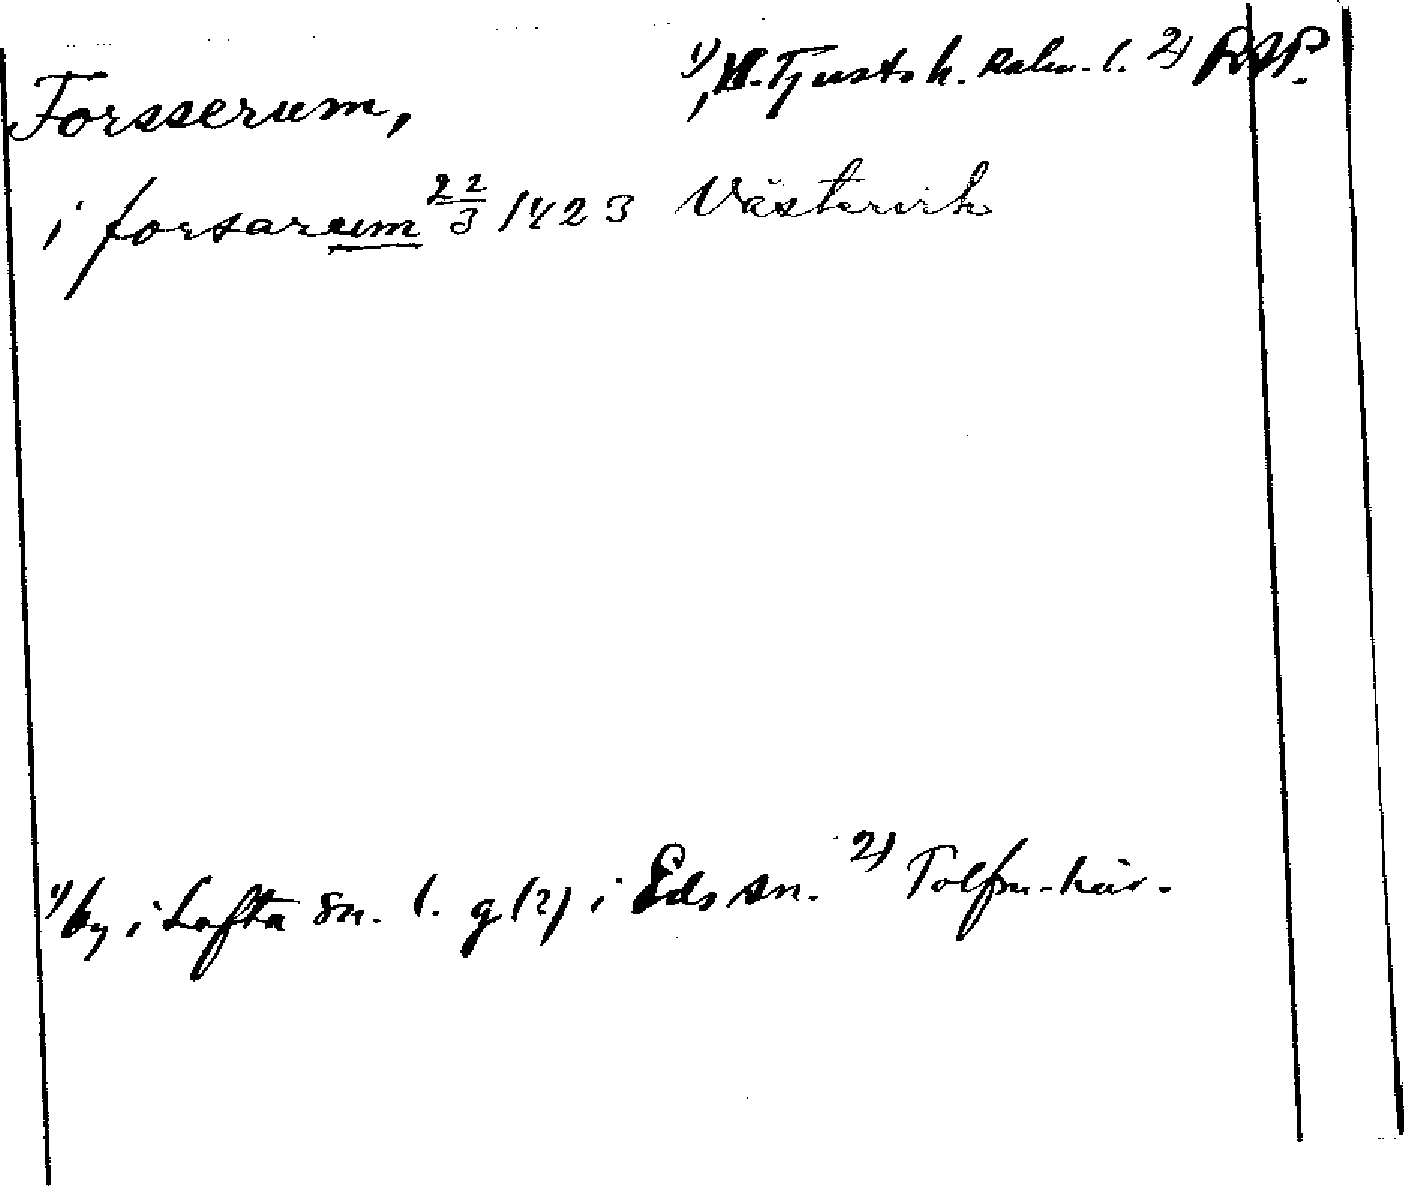 Forsserum, 1), N. Tjusts h. Kalm. l. 2) RAP.
i forsarum 22/3 1423 Västervik
1) by i Lofta sn. l. g (?) i Eds sn. 2) Tolfm. här.